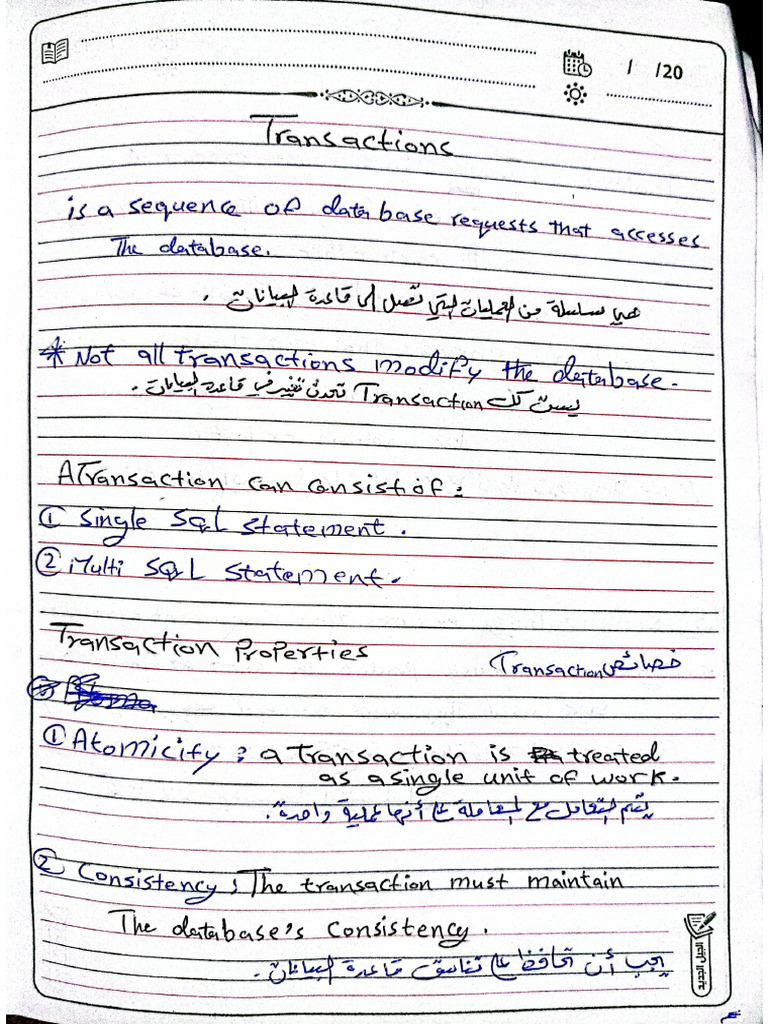 / /20
Transactions
is a sequence of database requests that accesses
The database.
هي سلسلة من العمليات التي تصل الى قاعدة البيانات .
* Not all transactions modify the database.
ليست كل Transaction تحدث تغيير في قاعدة البيانات .
A Transaction can consist of :
① Single SQL statement .
② Multi SQL statement .
Transaction Properties
خصائص Transaction
① Atomicity : a transaction is treated
as a single unit of work .
يتم التعامل مع المعاملة على أنها عملية واحدة .
② Consistency : The transaction must maintain
The database's consistency .
يجب أن تحافظ على تناسق قاعدة البيانات .
الجيل الجديد